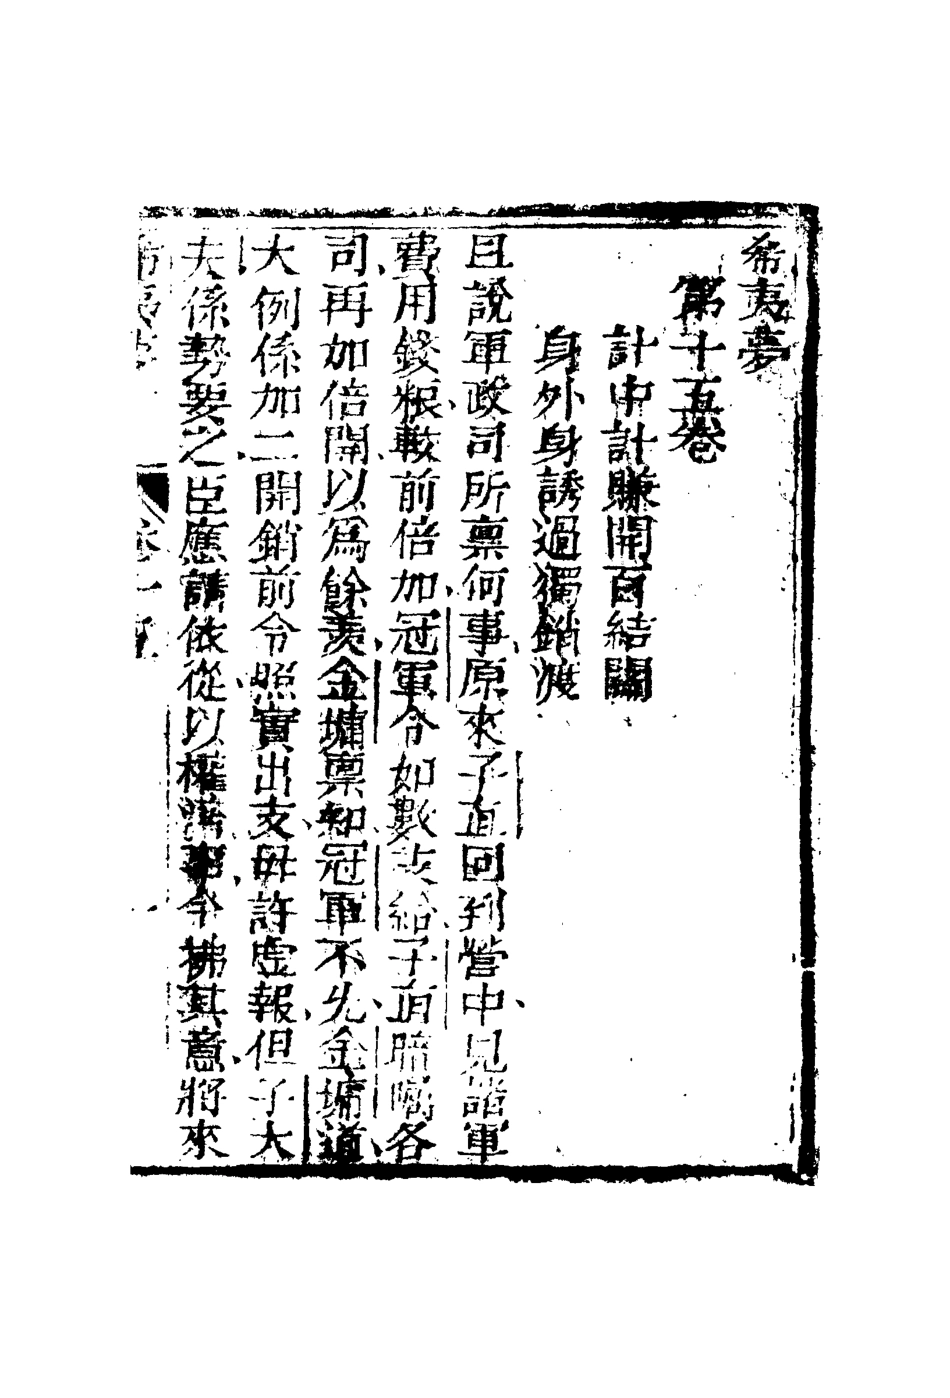 希夷夢
第十五卷
計中計賺開百結關
身外身誘過獨銷渡
且說軍政司所禀何事原來子直回到營中見諸軍
費用錢粮較前倍加冠軍令如數支給子直暗囑各
司再加倍開以爲餘羨金墉禀知冠軍不允金墉道
大例係加二開銷前令照實出支毋許虛報但子大
夫係勢要之臣應請依從以權濟事今拂其意將來